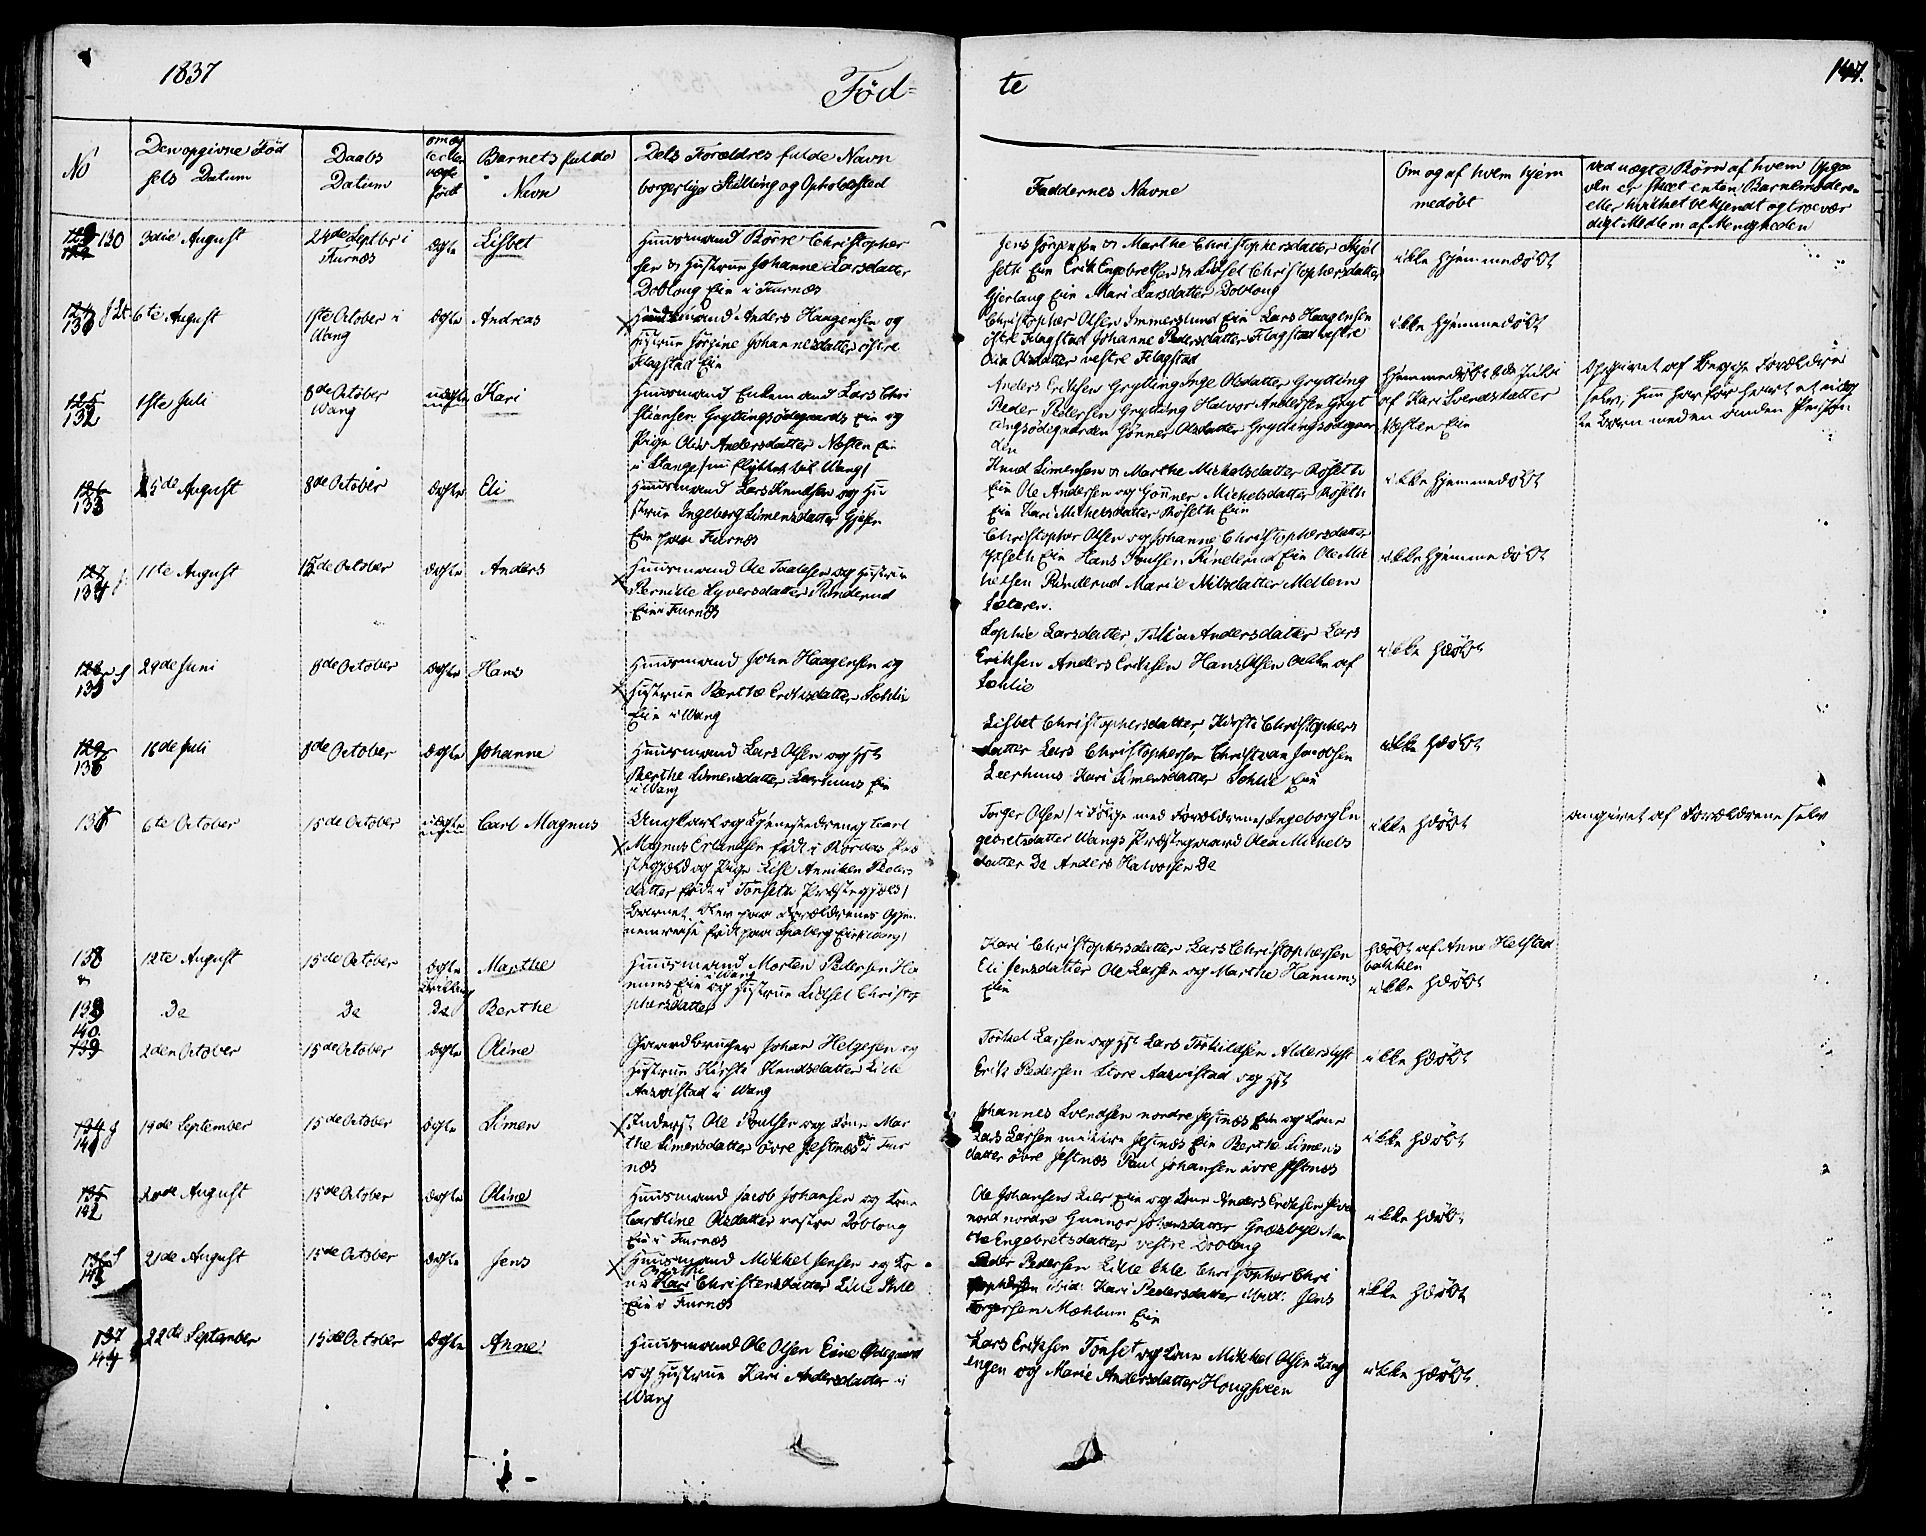 1837
Fød=
te
147.
No
Den opgivne Fød
sels Datum
Daabs
Datum
om æg
te eller
uægte
født
Barnets fulde
Navn
Dets Forældres fulde Navn
borgerlige Stilling og Opholdssted
Faddernes Navne
Om og af hvem hjem
medøbt
ved uægte Børn af hvem Opga
ven er skeet enten Barnemoderen
eller hvilket bekjendt og troevær
digt Medlem af Menigheden
130
3die August
24de Septbr i
Furnæs
ægte
Lisbet
Huusmand Børre Christopher
sen & Hustrue Johanne Larsdatter
Doblong Eie i Furnæs
Jens Jørgensen & Marthe Christophersdatter Skjøl
seth Eie Erik Engebretsen & Lisbet Christophersdatter
Gjerlang Eie Mari Larsdatter Doblong
ikke hjemmedøbt
131
6te August
1ste October i
Wang
ægte
Andreas
Huusmand Anders Haagensen og
Hustrue Jørgine Johannesdatter østre
Flagstad Eie
Christopher Olsen Immerslund Eie Lars Haagensen
østre Flagstad Johanne Pedersdatter Flagstad vestre
Olsdatter vestre Flagstad
ikke hjemmedøbt
125
132
1ste Juli
8de October
Wang
uægte
Kari
Huusmand Enkemand Lars Chri
stiansen Gryttingsødegaards Eie og
Pige Olia Andersdatter Næsten Eie
i Stange/nu flyttet til Wang/
Anders Eriksen Grytting Inge Olsdatter Grytting
Peder Pedersen Grytting Halvor Andersen Gryt
tingsødegaarden Gønner Olsdatter Gryttingsødegaar
den
hjemmedøbt 8de Juli
af Kari Svendsdatter
Næsten Eie
Opgivet af Begge Forældrene
selv, hun har før havt et uæg
te Barn med en anden Person
126
133
15de August
8de October
ægte
Eli
Huusmand Lars Knudsen og Hu
strue Ingeborg Simensdatter Gjesen
Eie paa Furnæs
Knud Simensen & Marthe Michelsdatter Røseth
Eie Ole Andersen og Gønner Michelsdatter Røseth
Eie Kari Michelsdatter Røseth Eie
ikke hjemmedøbt
127
134
11te August
15de October
ægte
Anders
Huusmand Ole Paulsen og Hustrue
Pernille Syversdatter Rinderud
Eie i Furnæs
Christopher Olsen og Johanne Christophersdatter
Eie Hans Poulsen Rinderud Eie Ole Mic
helsen Rinderud Marie Nilsdatter Mellem
Sælaren.
ikke hjemmedøbt
128
135
29de Juni
8de October
ægte
Hans
Huusmand John Haagensen og
Hustrue Berthe Eriksdatter Sohlie
Eie i Wang
Sophie Larsdatter Andersdatter Lars
Eriksen Anders Eriksen Hans Olsen alle af
Sohlie
ikke Hdøbt
129
136
18de Juli
8de October
ægte
Johanne
Huusmand Lars Olsen og Hst
Berthe Simensdatter Leerhuus Eie
i Wang
Lisbet Christophersdatter, Kirsti Christophers
datter Lars Christophersen Christian Jacobsen
Leerhuus Kari Simensdatter Sohlie Eie
ikke Hdøbt
137
6te October
15de October
uægte
Carl Magnus
Ungkarl og Tjenestedreng Carl
Magnus Erlandsen født i Røraas Præ
stegjeld og Pige Lise Anniken Peders
datter født i Tønseth Præstegjeld/
Barnet blev paa Forældrenes Gjen
nemreise født paa Spaberg Eie i Wang/
Torger Olsen/i Følge med Forældrene/Ingeborg En
gebretsdatter Wangs Præstegaard Olea Michels
datter De Anders Halvorsen De
ikke Hdøbt
angivet af Forældrene selv
138
&
12te August
15de October
ægte
Tvilling
Marthe
Huusmand Morten Pedersen Ha
nums Eie i Wang og Hustrue Lisbet Christo
phersdatter
Kari Christophersdatter Lars Christophersen
Eli Jensdatter Ole Larsen og Marthe Hanums
Eie
Hdøbt af Anne Helstad
bakken
ikke Hdøbt
139
De
De
De
Berthe
140
139
2den October
15de October
ægte
Oline
Gaardbruger Johan Helgesen og
Hustrue Kirsti Knudsdatter Lille
Aarvistad i Wang
Torkel Larsen og Hst Lars Torkildsen Alderslyst
Erik Pedersen Store Aarvistad og Hst
ikke Hdøbt
134
141
19de September
15de October
ægte
Simen
Inderst Ole Poulsen og Kone Mar
the Simensdatter øvre Jestnæs Eie i Fur
næs
Johannes Svendsen nordre Jestnæs Eie og Kone
Lars Larsen Jestnæs Eie Berthe Simens
datter øvre Jestnæs Paul Johansen øvre Jestnæs
ikke Hdøbt
135
142
20de August
15de October
ægte
Oline
Huusmand Jacob Johansen og Kone
Caroline Olsdatter vestre Doblong
Eie i Furnæs
Ole Johansen Lier Eie og Kone Anders Eriksen
nord nordre Gunnor Johansdatter Græsbye Mar
the Engebretsdatter vestre Doblong
ikke Hdøbt
136
143
21de August
15de October
ægte
Jens
Huusmand Mikkel Jensen og Ko
ne Marthe Christensdatter Lille Ihle
Eie i Furnæs
Peder Pedersen Lille Ihle Christopher Chri
stophersen ibid: Kari Pedersdatter ibid: Jens
Torgersen Mæhlum Eie
ikke Hdøbt
137
144
22de September
15de October
ægte
Anne
Huusmand Ole Olsen Eine Ødegaard
og Hustrue Kari Andersdatter i
Wang
Lars Eriksen Tønset og Kone Mikkel Olsen Lang
engen og Marie Andersdatter Hougsveen
ikke Hdøbt